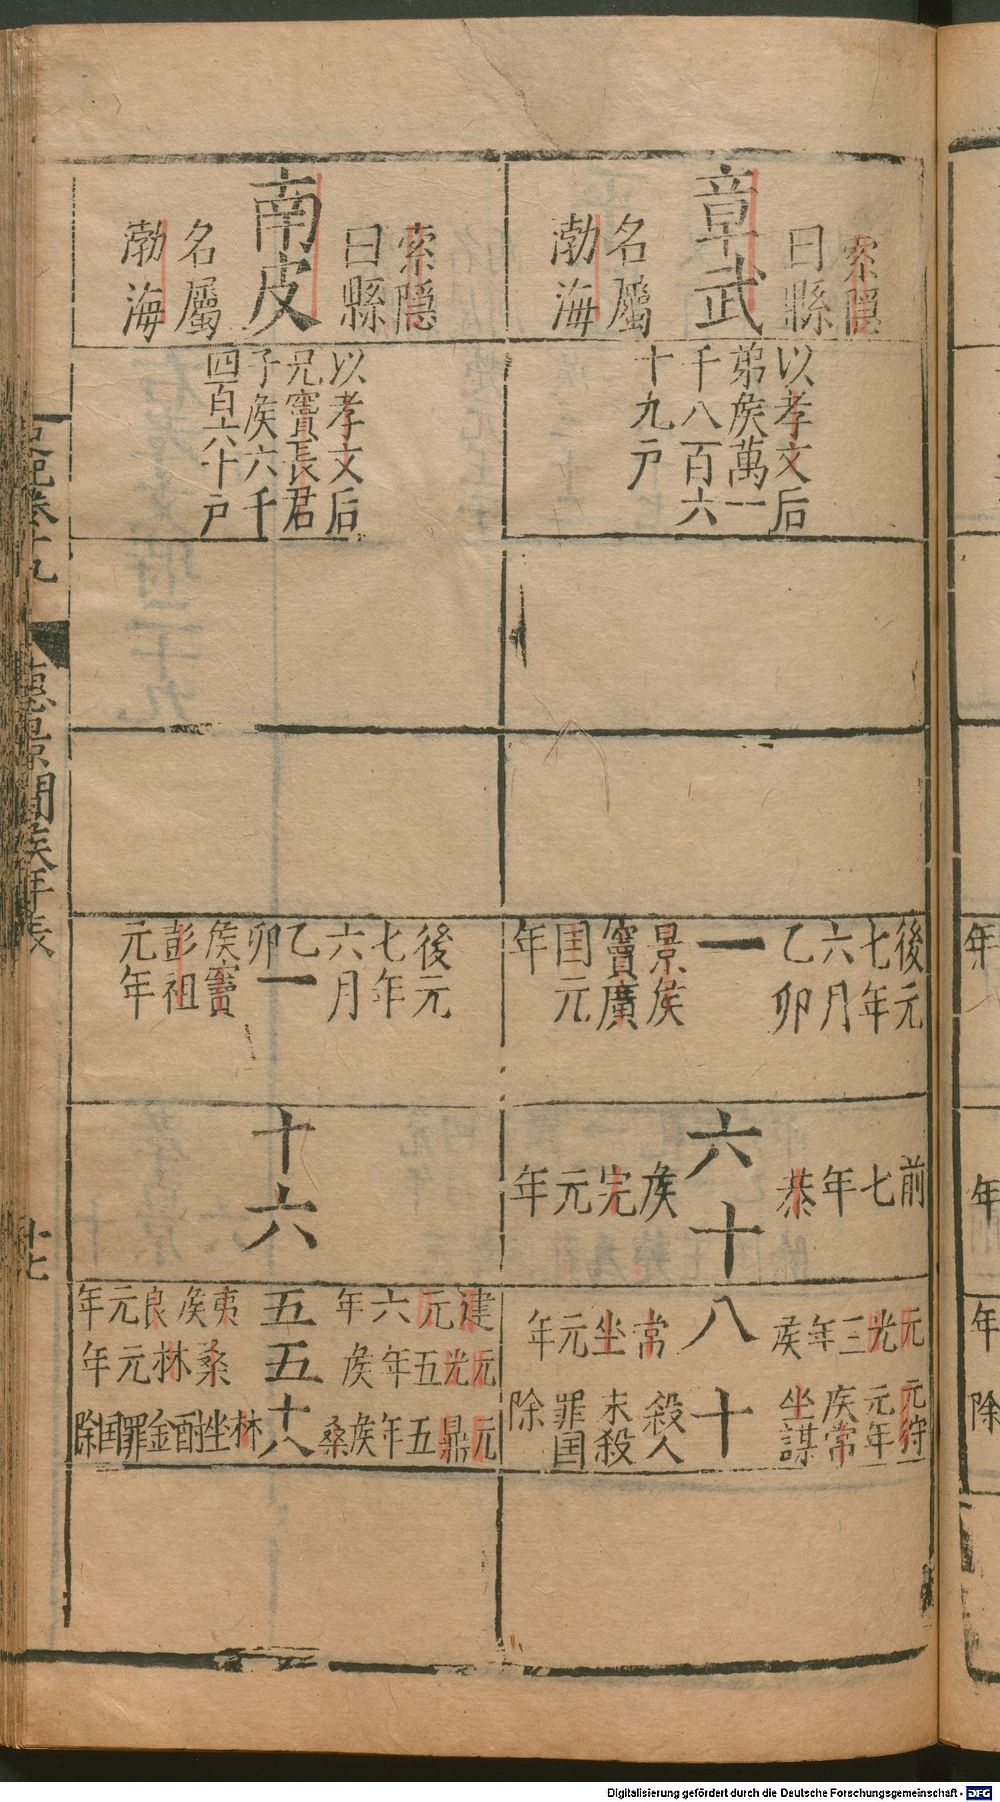 索隱
曰縣
章武
名屬
渤海
以孝文后
弟矦萬一
千八百六
十九户
後元
七年
六月
乙卯
一
景矦
竇廣
囯元
年
前
七
年
恭
六十
矦
完
元
年
元光三年矦
八
常坐元年
元狩
元年
矦常
坐謀
十
殺人
未殺
罪囯
除
索隱
曰縣
南皮
名屬
渤海
以孝文后
兄竇長君
子矦六千
四百六十户
後元
七年
六月
乙
卯
一
矦竇
彭祖
元年
十六
建元六年
五
夷矦良元年
元光五年矦
五
桑林元年
元鼎五年矦桑
十八
林坐酎金罪囯除
史記卷十九
惠景間矦年表
十七
Digitalisierung gefördert durch die Deutsche Forschungsgemeinschaft - DFG